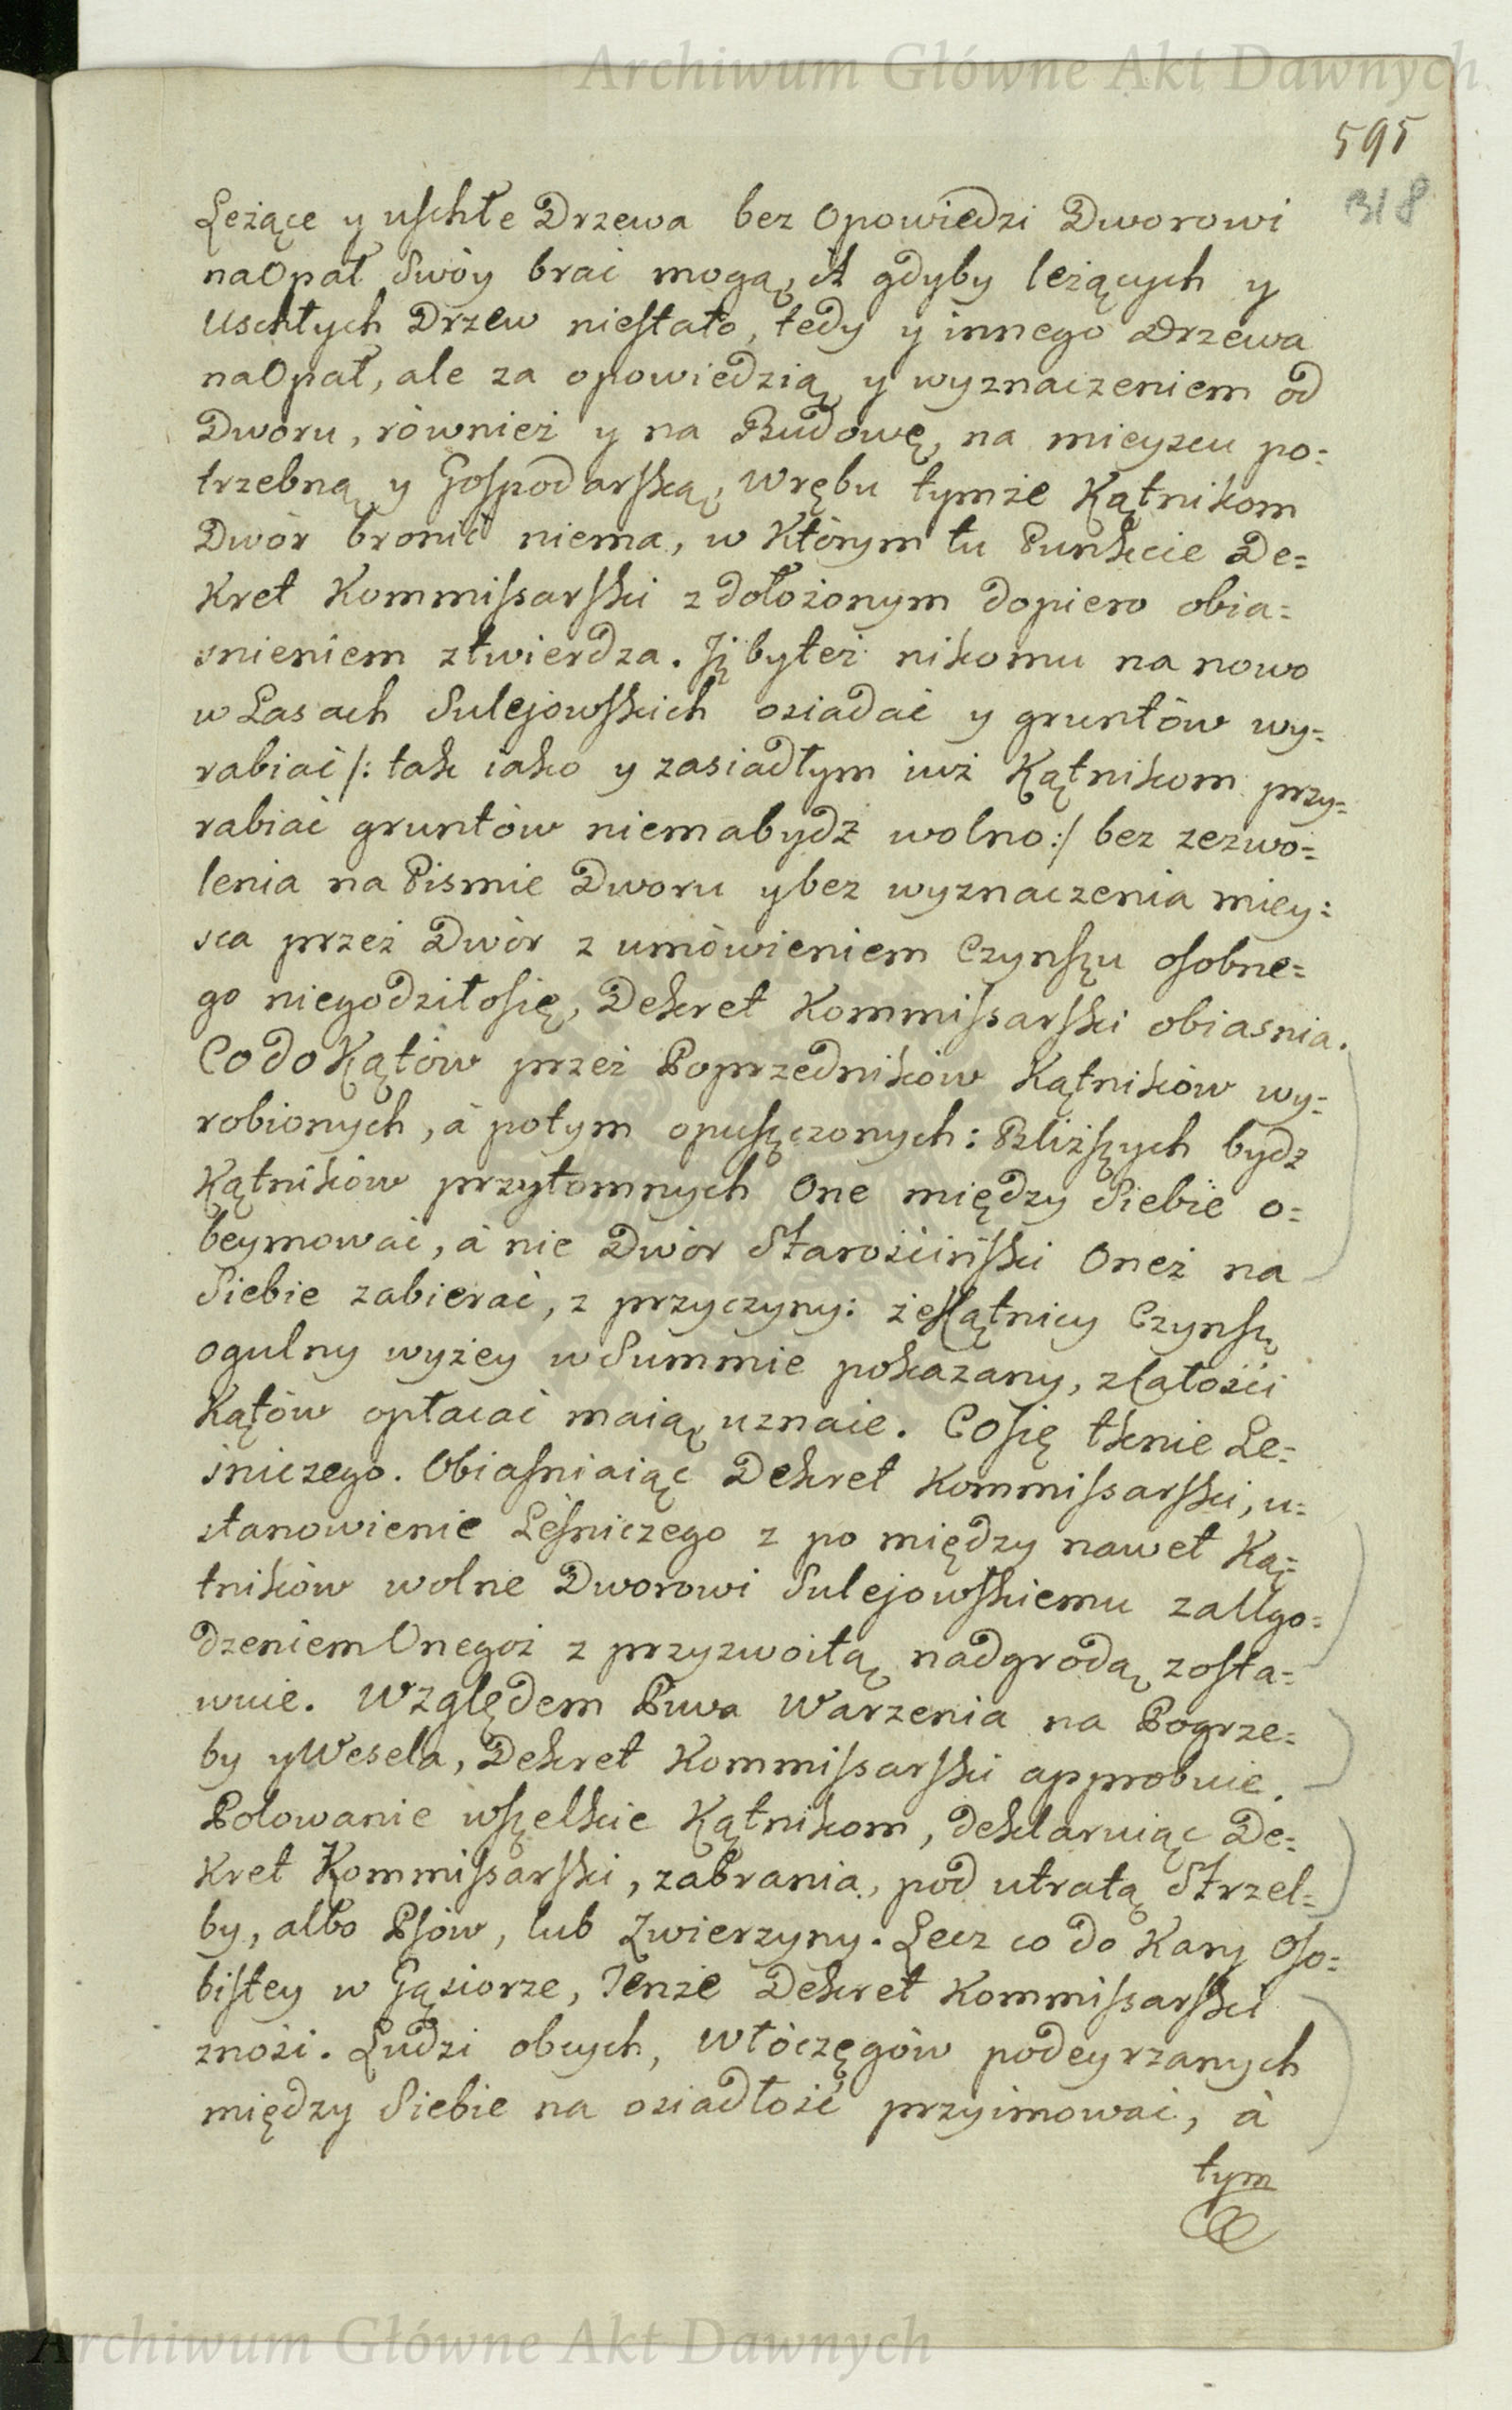 Archiwum Główne Akt Dawnych
595
318
Leżące y uschłe Drzewa bez Opowiedzi Dworowi
na Opał Swóy brać mogą, A gdyby leżących y
Uschłych Drzew niestało, tedy y innego Drzewa
na Opał, ale za opowiedzią y wyznaczeniem od
Dworu, również y na Budowę, na mieyscu po=
trzebną y Gospodarską, Wrębu tymże Kątnikom
Dwór bronić niema, w Którym tu Punkcie De=
kret Kommissarski z dołożonym dopiero obia=
snieniem ztwierdza. Iżby też nikomu na nowo
w Lasach Sulejowskich osiadać y gruntów wy=
rabiać /: tak iako y zasiadłym iuż Kątnikom przy=
rabiać gruntów niema bydź wolno :/ bez zezwo=
lenia na Pismie Dworu y bez wyznaczenia miey=
sca przez Dwór z umówieniem Czynszu osobne=
go niegodziło się, Dekret Kommissarski obiasnia.
Co do Kątów przez Poprzedników Kątników wy=
robionych, à potym opuszczonych: Bliższych bydz
Kątników przytomnych One między Siebie o=
beymować, à nie Dwór Starościński Oneż na
Siebie zabierać, z przyczyny: że Kątnicy Czynsz
ogulny wyżey w Summie pokazany, z całości
Kątów opłacać maią, uznaie. Co się tknie Le=
śniczego. Obiasniaiąc Dekret Kommissarski, u=
stanowienie Leśniczego z po między nawet Ką=
tników wolne Dworowi Sulejowskiemu za Ugo=
dzeniem Onegoż z przyzwoitą nadgrodą zosta=
wuie. Względem Piwa Warzenia na Pogrze=
by y Wesela, Dekret Kommissarski approbuie.
Polowanie wszelkie Kątnikom, deklaruiąc De=
kret Kommissarski, zabrania, pod utratą Strzel=
by, albo Psów, lub Zwierzyny. Lecz co do Kary Oso=
bistey w Gąsiorze, Tenże Dekret Kommissarski
znosi. Ludzi obcych, Włóczęgów podeyrzanych
między Siebie na osiadłość przyimować, à
tym
Archiwum Główne Akt Dawnych